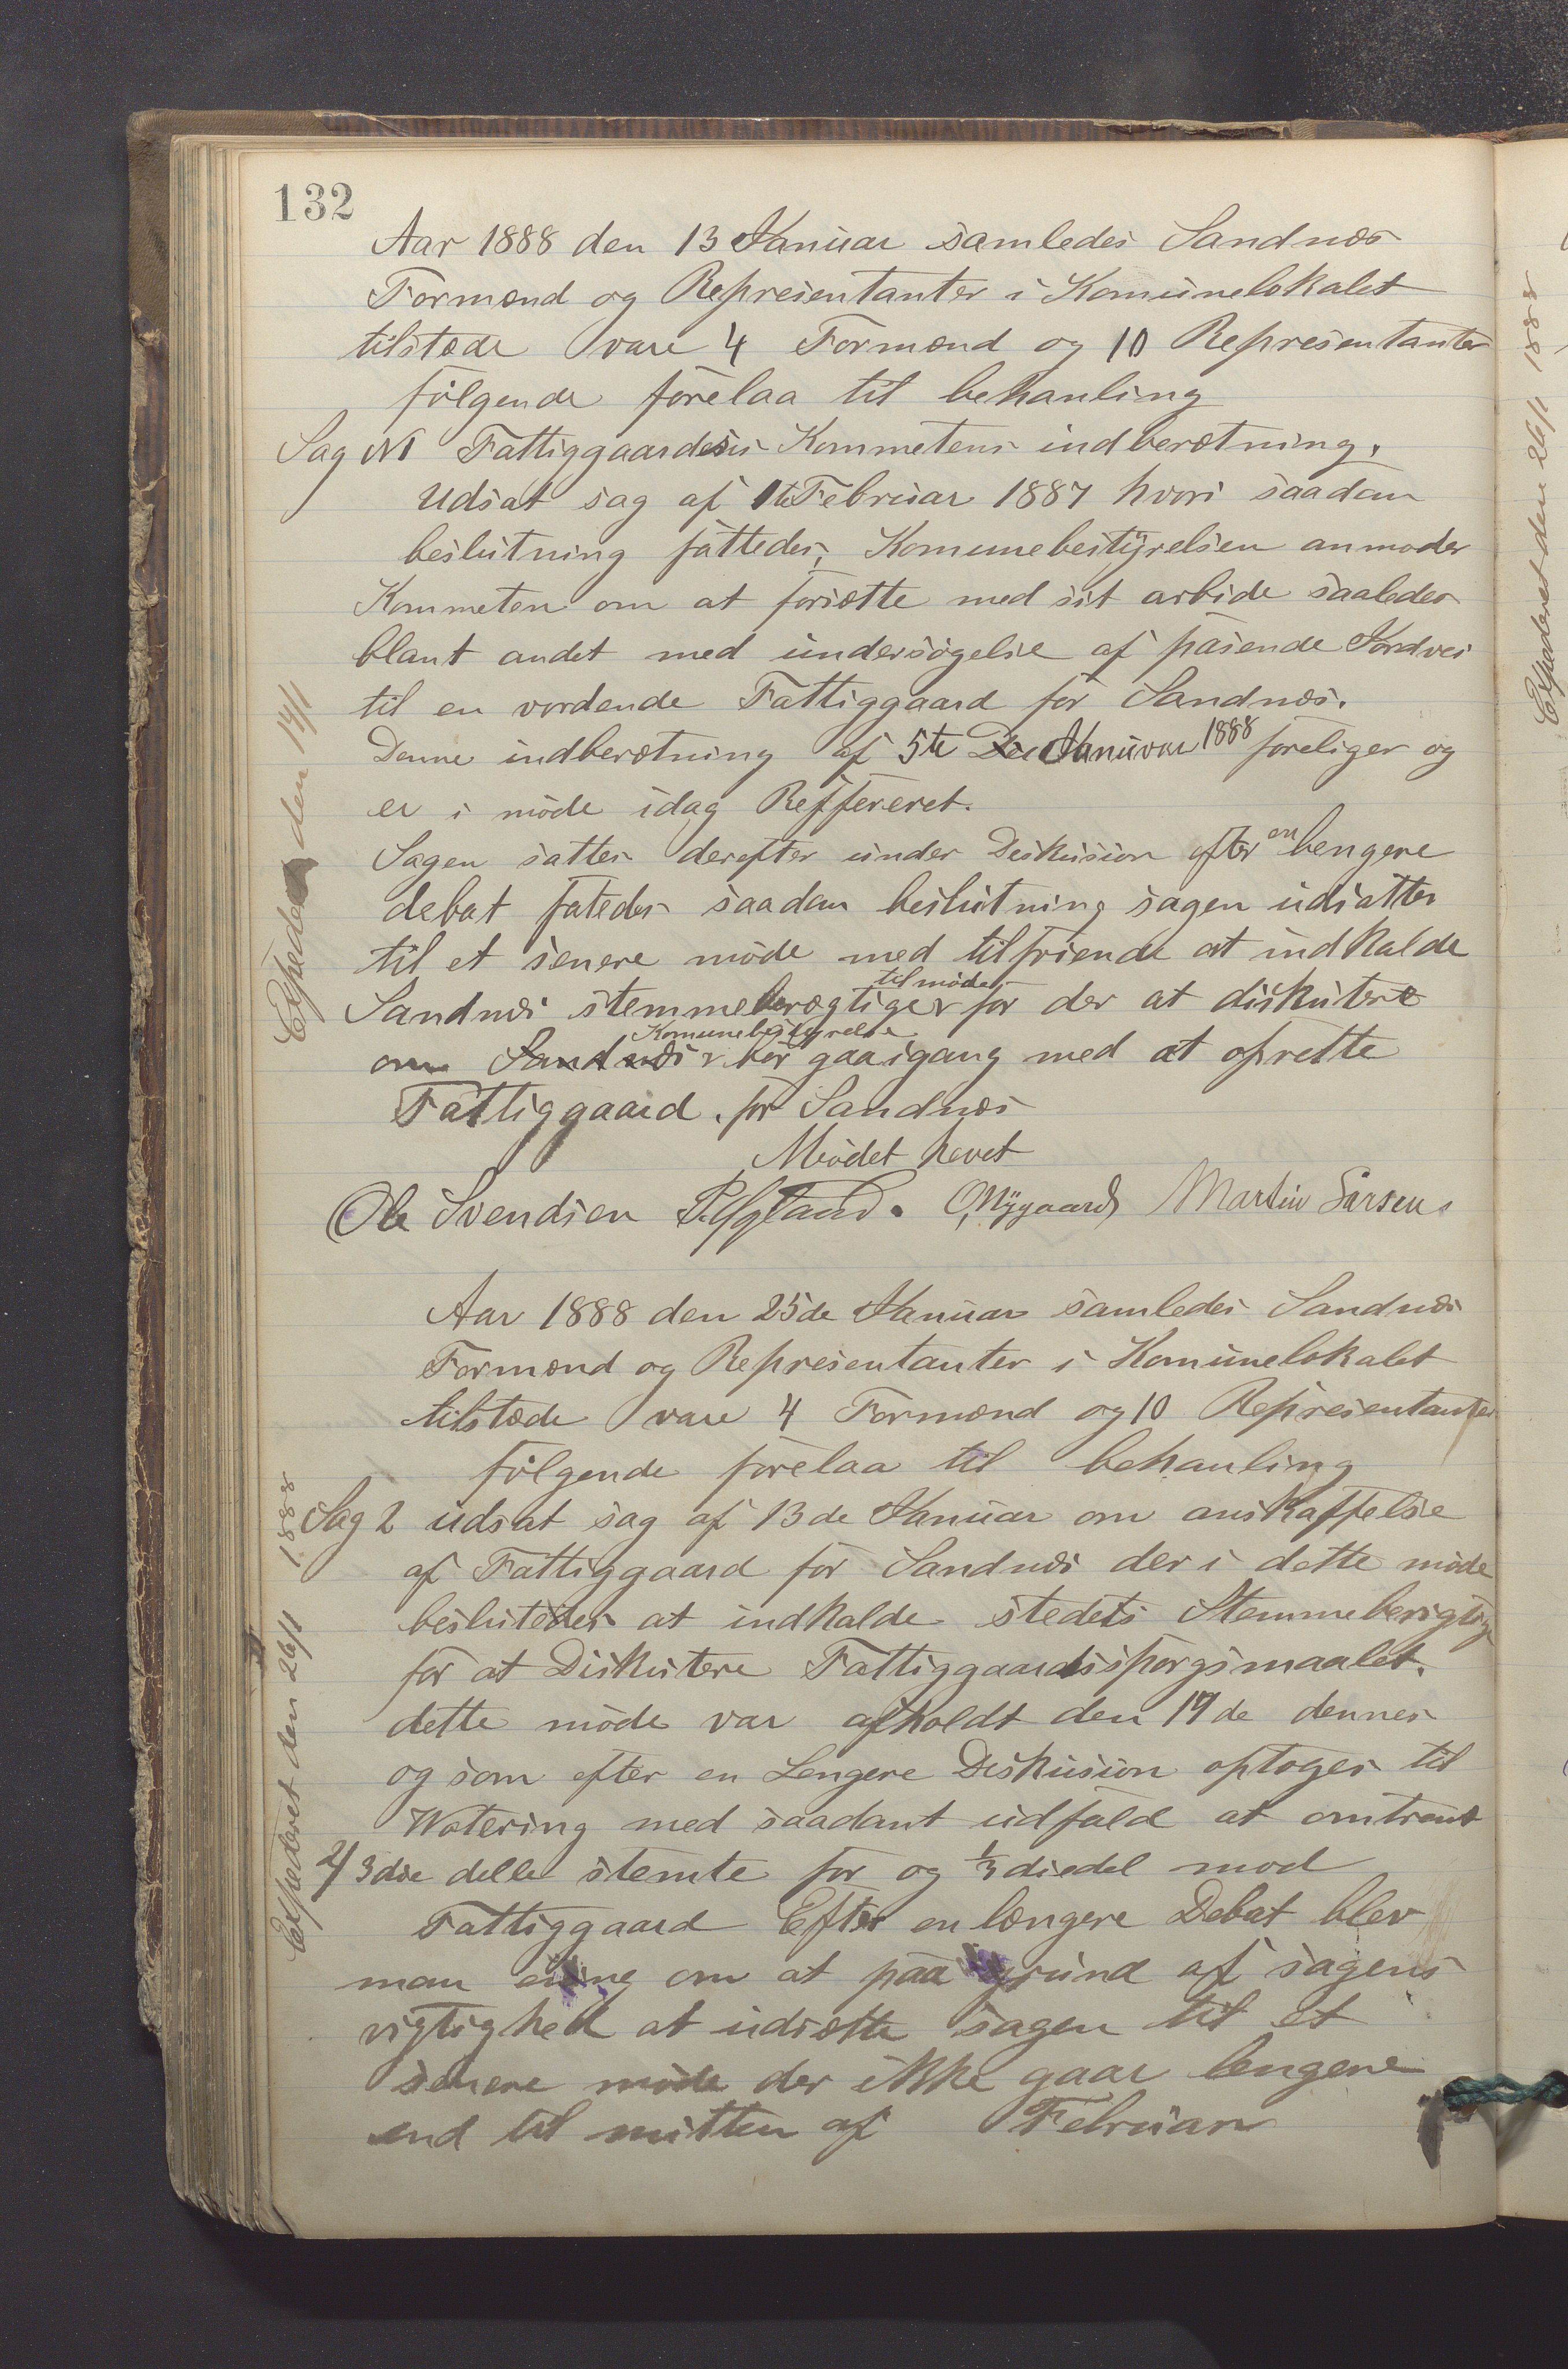 132
Aar 1888 den 13 Januar samledes Sandnæs
Formænd og Represientanter i Komunelokalet
tilstæde vare 4 Formænd og 10 Representanter
følgende forelaa til behanling
Sag N1 Fattiggaardens Kommetens indberætning.
Udsat sag af 1te Februar 1887 hvori saadan
beslutning fattedes, Komunebestyrelsen anmoder
Kommeten om at forsætte med sit arbide saaledes
blant andet med undersøgelse af pasende Jordvei
til en vordende Fattiggaard for Sandnæs.
Denne indberætning af 5te Januvar 1888 foreliger og
er i møde idag Reffereret.
Sagen sattes derefter under Diskusion efter en lengere
debat fatedes saadan beslutning sagen udsættes
til et senere møde med tilføiende at indkalde
Sandnæs stemmeberægtiger til møde for der at diskutere
om Sandnæs Komunebestyrelse bør gaa igang med at oprette
Fattiggaard. for Sandnæs
Mødet hevet
Ole Svendsen O. Nygaard Martin Larsen
Expederet den 14/1
Aar 1888 den 25de Januar samledes Sandnæs
Formænd og Represientanter i Komunelokalet
tilstæde vare 4 Formænd og 10 Represientanter
følgende forelaa til behanling
Sag 2 udsat sag af 13de Januar om anskaffelse
af Fattiggaard for Sandnæs der i dette møde
besluttedes at indkalde stedets Stemmeberigtige
for at Diskutere Fattiggaardsspørgsmaalet.
dette møde var afholdt den 19de dennes
og som efter en Lengere Diskusion optoges til
Wotering med saadant udfald at omtrent
2/3die delle stemte for og 1/3diedel mod
Fattiggaard Efter en længere Debat blev
man ening om at paa grund af sagens
vigtighed at udsætte sagen til et
senere møde der ikke gaar lengere
end til mitten af Februar
Expederet den 26/1 1888
Expederet den 26/1 1888